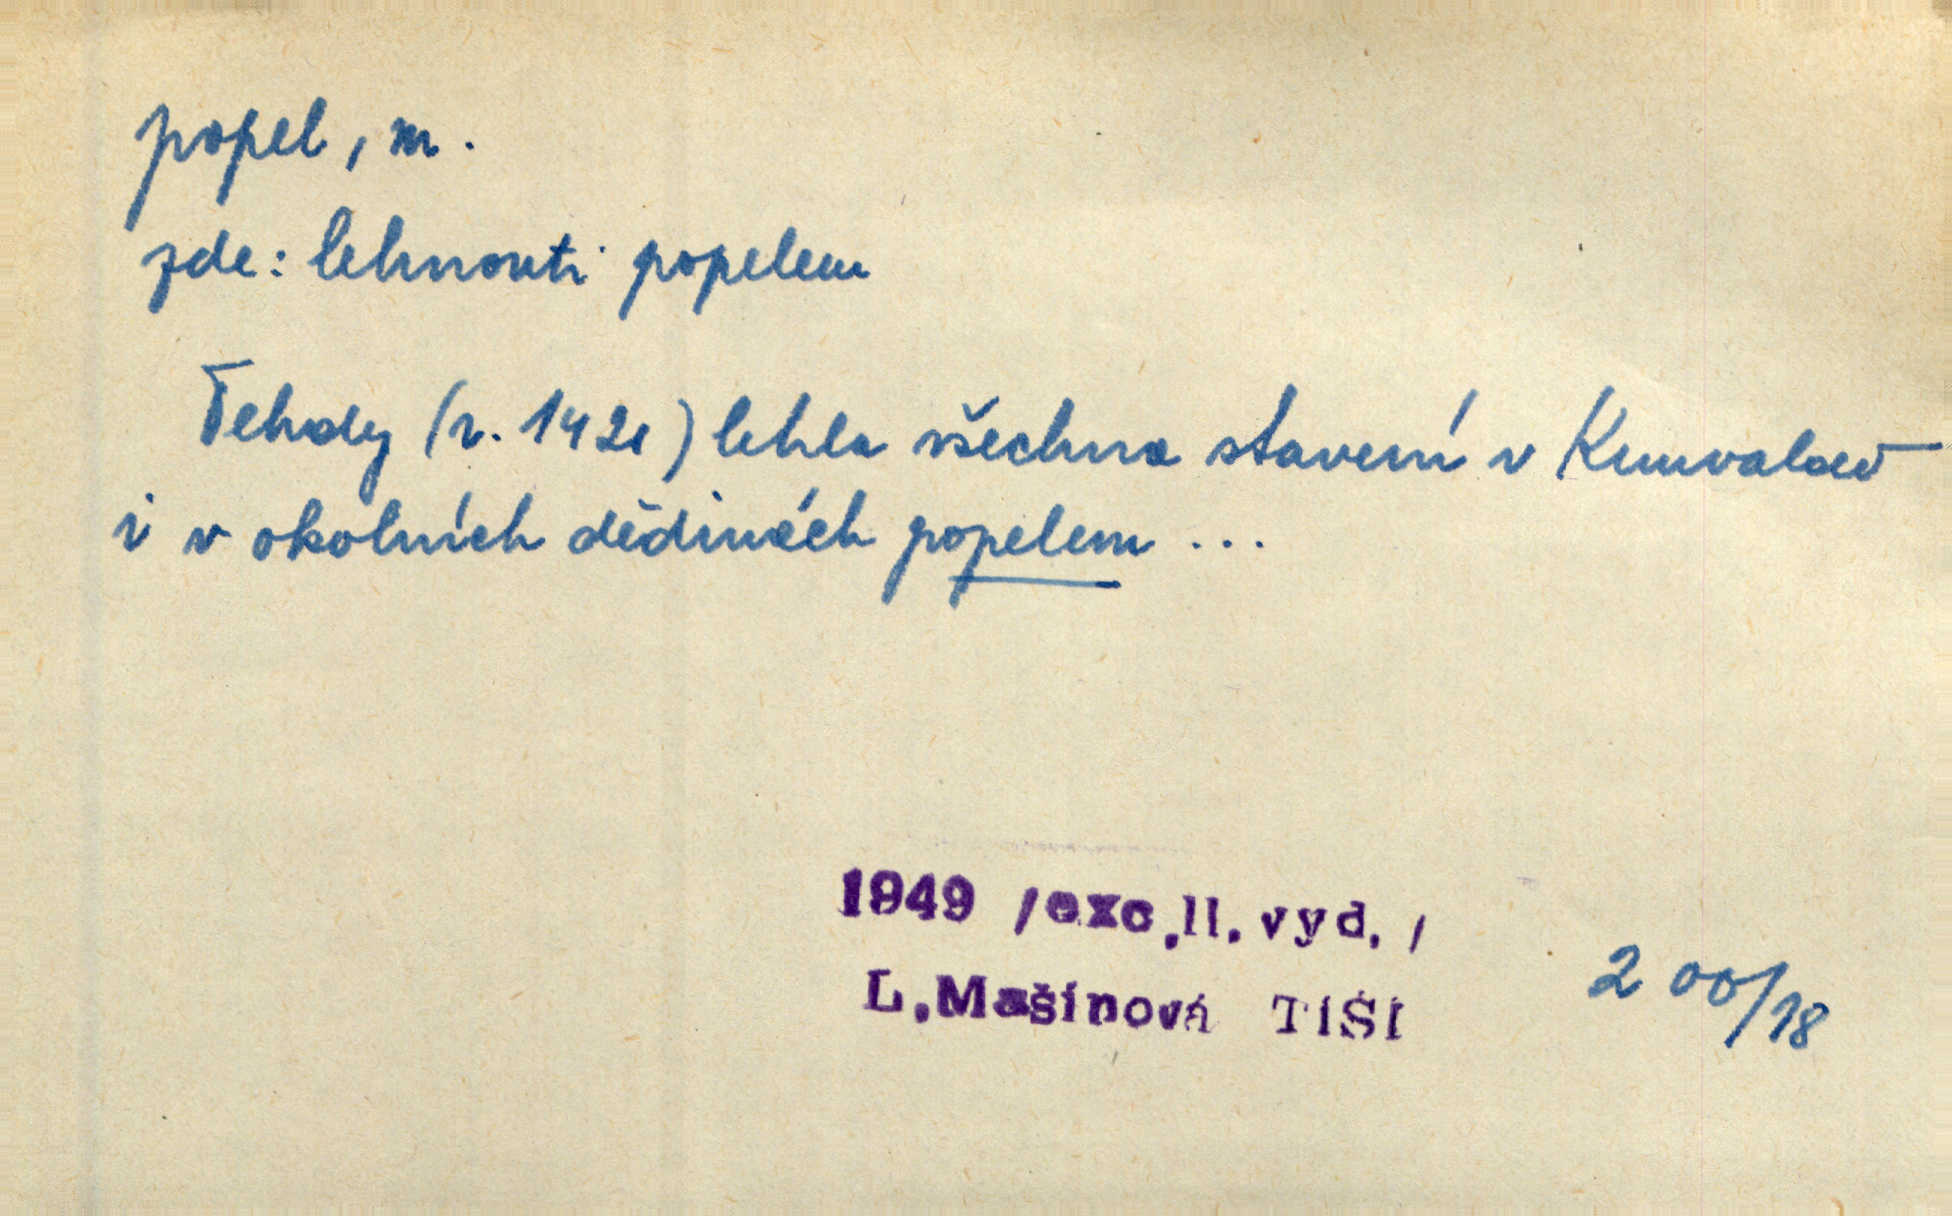 popel, m.
zde: lehnouti popelem
Tehdy (r. 1421) lehla všechna stavení v Kunvaldě
i v okolních dědinách popelem ...
1949 /exc.II. vyd. /
L.Mašínová TIŠÍ
200/18